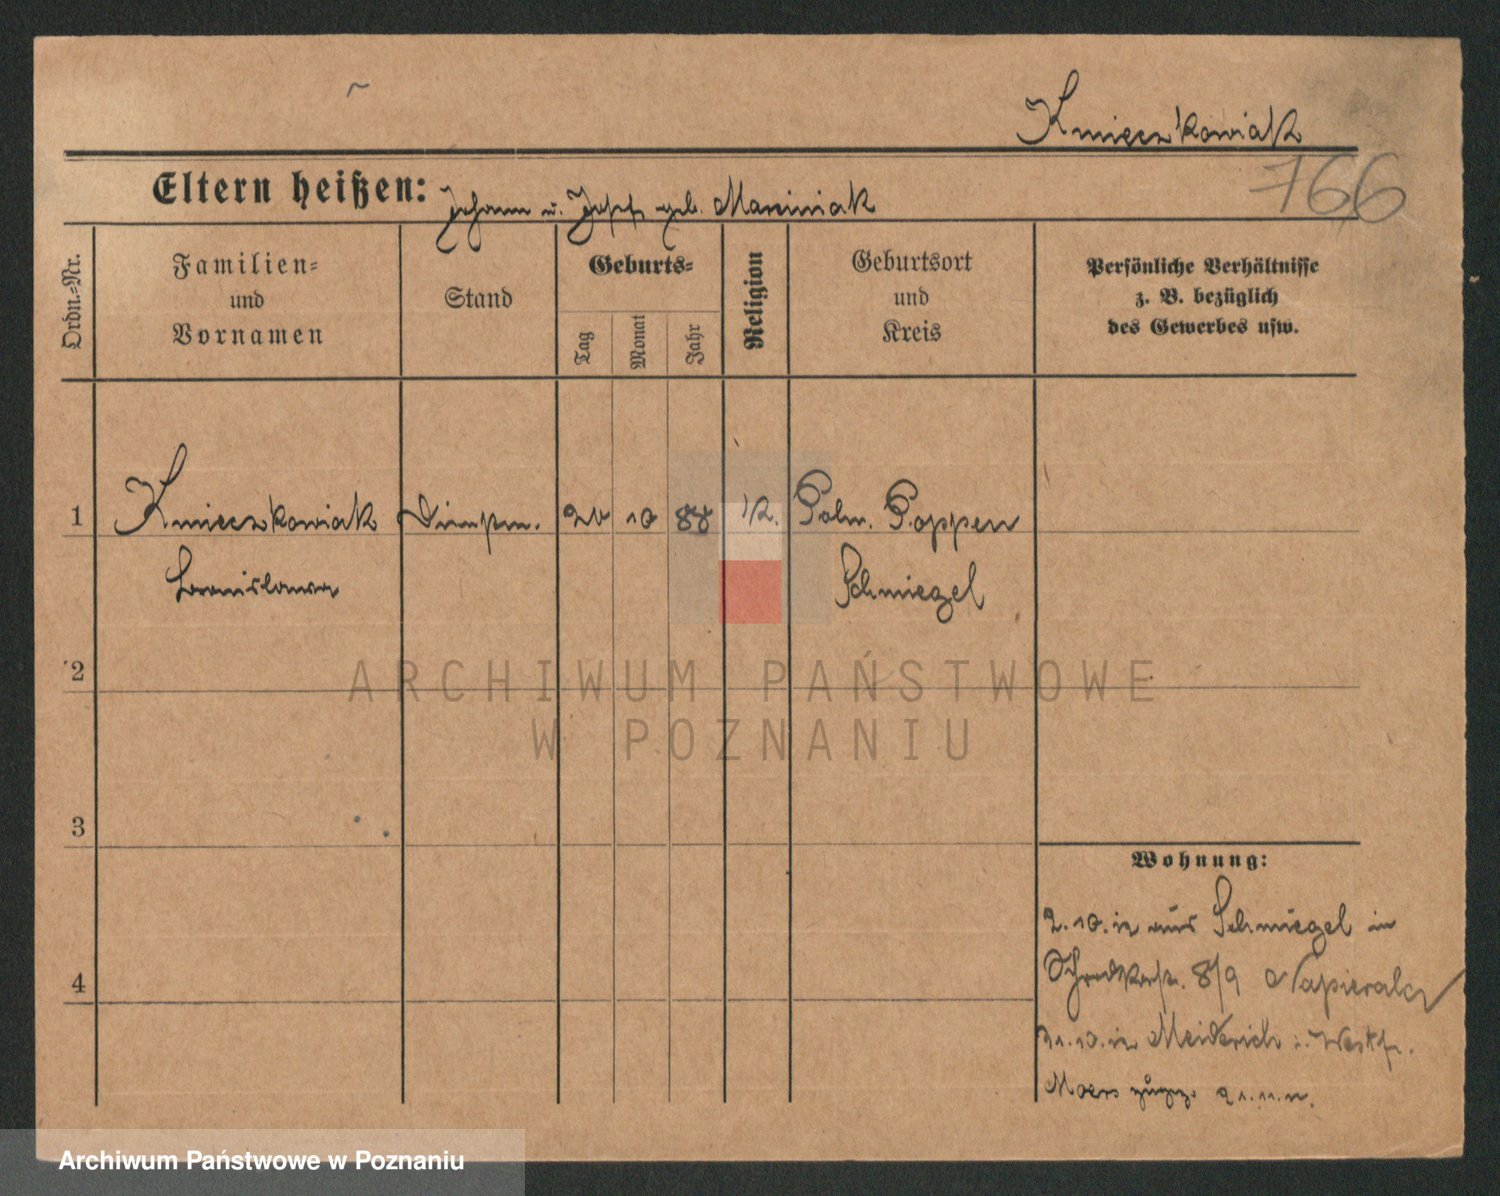 Kmieczkowiak
766
Eltern heißen: Johann u. Josefa geb. Marciniak
Ordn.-Nr.
Familien-
und
Vornamen
Stand
Geburts-
Tag
Monat
Jahr
Religion
Geburtsort
und
Kreis
Persönliche Verhältnisse
z. B. bezüglich
des Gewerbes usw.
1 Kmieczkowiak 10 88 K. Poln. Poppen
Bronislawa Schmiegel
2
3
4
Wohnung:
2.10.12 aus Schmiegel in
8/9 Napieralcz
21.10.12 Meiderich i. Westf.
Moers
ARCHIWUM PAŃSTWOWE
W POZNANIU
Archiwum Państwowe w Poznaniu